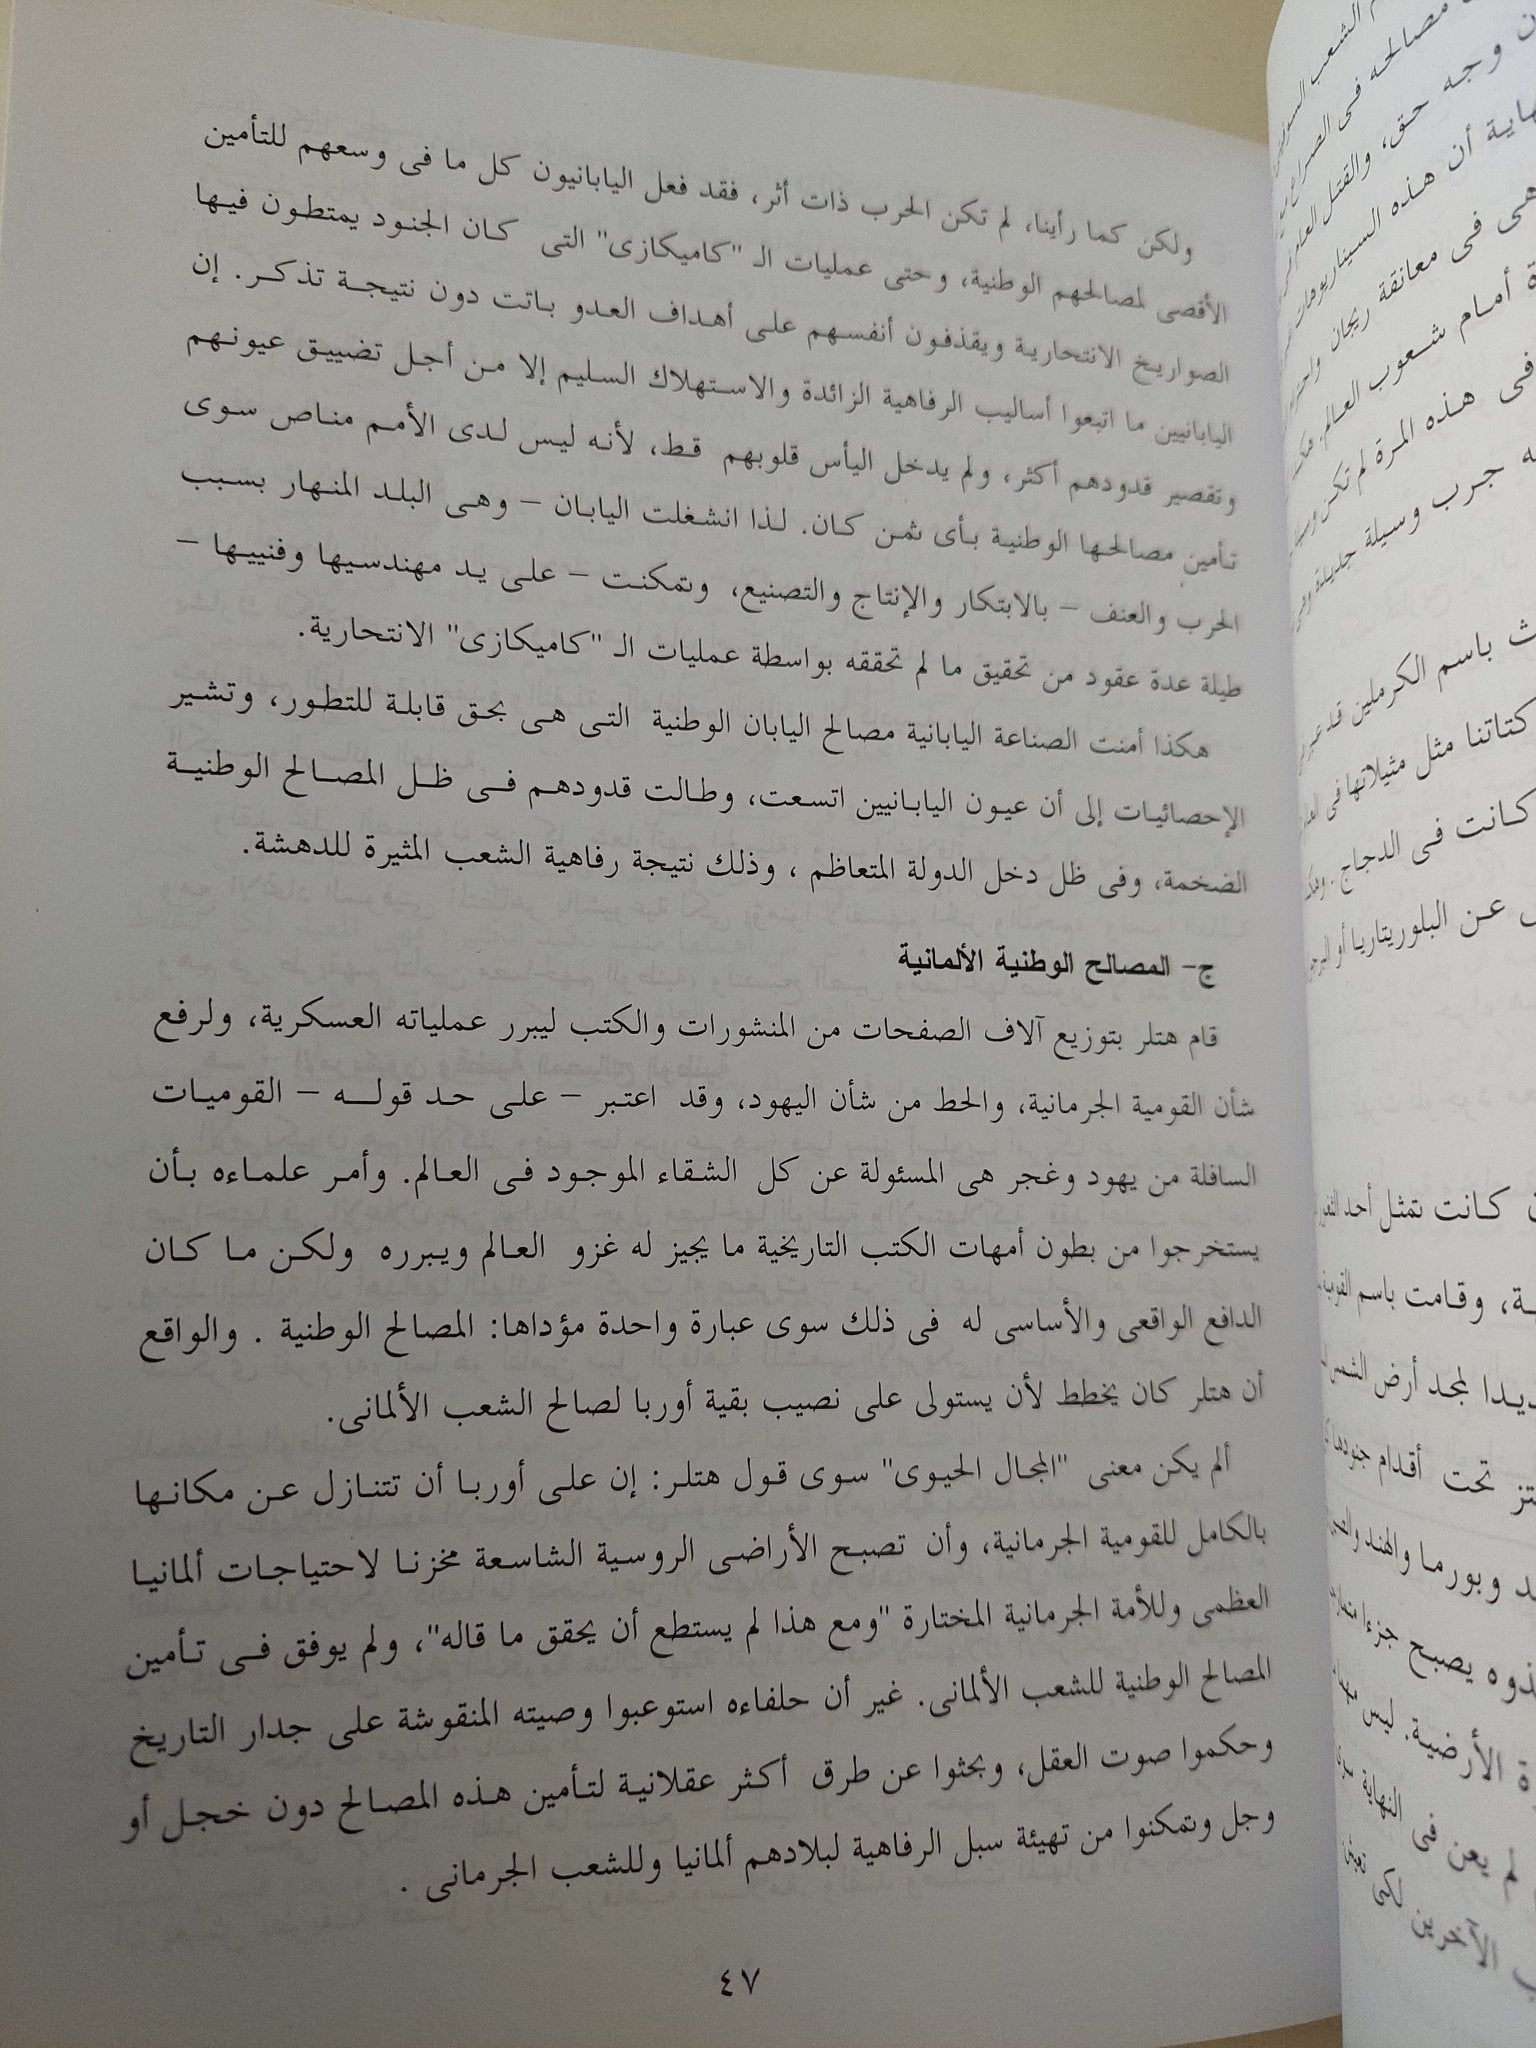 ولكن كما رأينا، لم تكن الحرب ذات أثر، فقد فعل اليابانيون كل ما فى وسعهم للتأمين
الأقصى لمصالحهم الوطنية، وحتى عمليات الـ "كاميكازى" التى كان الجنود يمتطون فيها
الصواريخ الانتحارية ويقذفون أنفسهم على أهداف العدو باتت دون نتيجة تذكر. إن
اليابانيين ما اتبعوا أساليب الرفاهية الزائدة والاستهلاك السليم إلا من أجل تضييق عيونهم
وتقصير قدودهم أكثر، ولم يدخل اليأس قلوبهم قط، لأنه ليس لدى الأمم مناص سوى
تأمين مصالحها الوطنية بأى ثمن كان. لذا انشغلت اليابان – وهى البلد المنهار بسبب
الحرب والعنف – بالابتكار والإنتاج والتصنيع، وتمكنت – على يد مهندسيها وفنييها –
طيلة عدة عقود من تحقيق ما لم تحققه بواسطة عمليات الـ "كاميكازى" الانتحارية.
هكذا أمنت الصناعة اليابانية مصالح اليابان الوطنية التى هى بحق قابلة للتطور، وتشير
الإحصائيات إلى أن عيون اليابانيين اتسعت، وطالت قدودهم فى ظل المصالح الوطنية
الضخمة، وفى ظل دخل الدولة المتعاظم ، وذلك نتيجة رفاهية الشعب المثيرة للدهشة.
ج- المصالح الوطنية الألمانية
قام هتلر بتوزيع آلاف الصفحات من المنشورات والكتب ليبرر عملياته العسكرية، ولرفع
شأن القومية الجرمانية، والحط من شأن اليهود، وقد اعتبر – على حد قوله – القوميات
السافلة من يهود وغجر هى المسئولة عن كل الشقاء الموجود فى العالم. وأمر علماءه بأن
يستخرجوا من بطون أمهات الكتب التاريخية ما يجيز له غزو العالم ويبرره ولكن ما كان
الدافع الواقعى والأساسى له فى ذلك سوى عبارة واحدة مؤداها: المصالح الوطنية . والواقع
أن هتلر كان يخطط لأن يستولى على نصيب بقية أوربا لصالح الشعب الألمانى.
ألم يكن معنى "المجال الحيوى" سوى قول هتلر: إن على أوربا أن تتنازل عن مكانها
بالكامل للقومية الجرمانية، وأن تصبح الأراضى الروسية الشاسعة مخزنا لاحتياجات ألمانيا
العظمى وللأمة الجرمانية المختارة "ومع هذا لم يستطع أن يحقق ما قاله"، ولم يوفق فى تأمين
المصالح الوطنية للشعب الألمانى. غير أن حلفاءه استوعبوا وصيته المنقوشة على جدار التاريخ
وحكموا صوت العقل، وبحثوا عن طرق أكثر عقلانية لتأمين هذه المصالح دون خجل أو
وجل وتمكنوا من تهيئة سبل الرفاهية لبلادهم ألمانيا وللشعب الجرمانى .
٤٧
مصالحه فى الصراع
وجه حق، والقتل العام
أن هذه السيناريوهات
هى فى معانقة ريجان
أمام شعوب العالم.
فى هذه المرة لم تكن
جرب وسيلة جديدة
باسم الكرملين قد
كتاتنا مثل مثيلاتها فى
كانت فى الدجاج.
عن البلوريتاريا أو
كانت تمثل أحد
وقامت باسم القومية
لمجد أرض الشمس
تحت أقدام جنودها
وبورما والهند
يصبح جزءا
الأرضية. ليس
لم يعن فى النهاية
الآخرين لكى